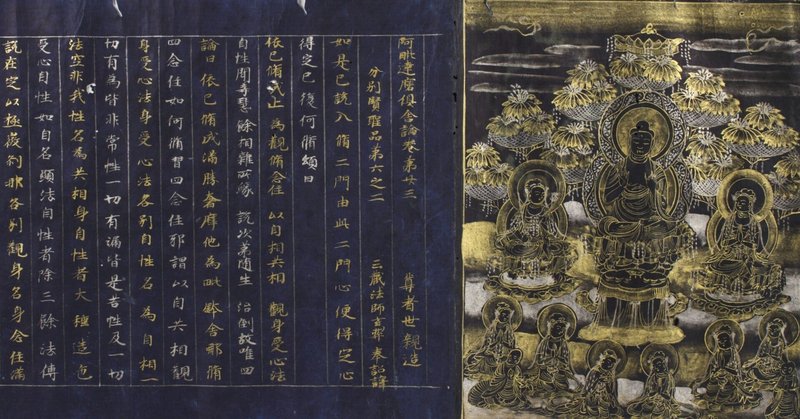 阿毗達磨俱舍論卷第廿三　尊者世親造
分別賢聖品第六之二　三藏法師玄奘奉詔譯
如是已說入修二門由此二門心便得定心
得定已復何所修頌曰
依已修成止　為觀修念住　以自相共相　觀身受心法
自性聞等慧　除相雜所緣　說次第隨生　治倒故唯四
論曰依已修成滿勝奢摩他為毗鉢舍那修
四念住如何修習四念住耶謂以自共相觀
身受心法身受心法各別自性名為自相一
切有為皆非常性一切有漏皆是苦性及一切
法空非我性名為共相身自性者大種造色
受心自性如自名顯法自性者除三餘法傳
說在定以極微剎那各別觀身名身念住滿